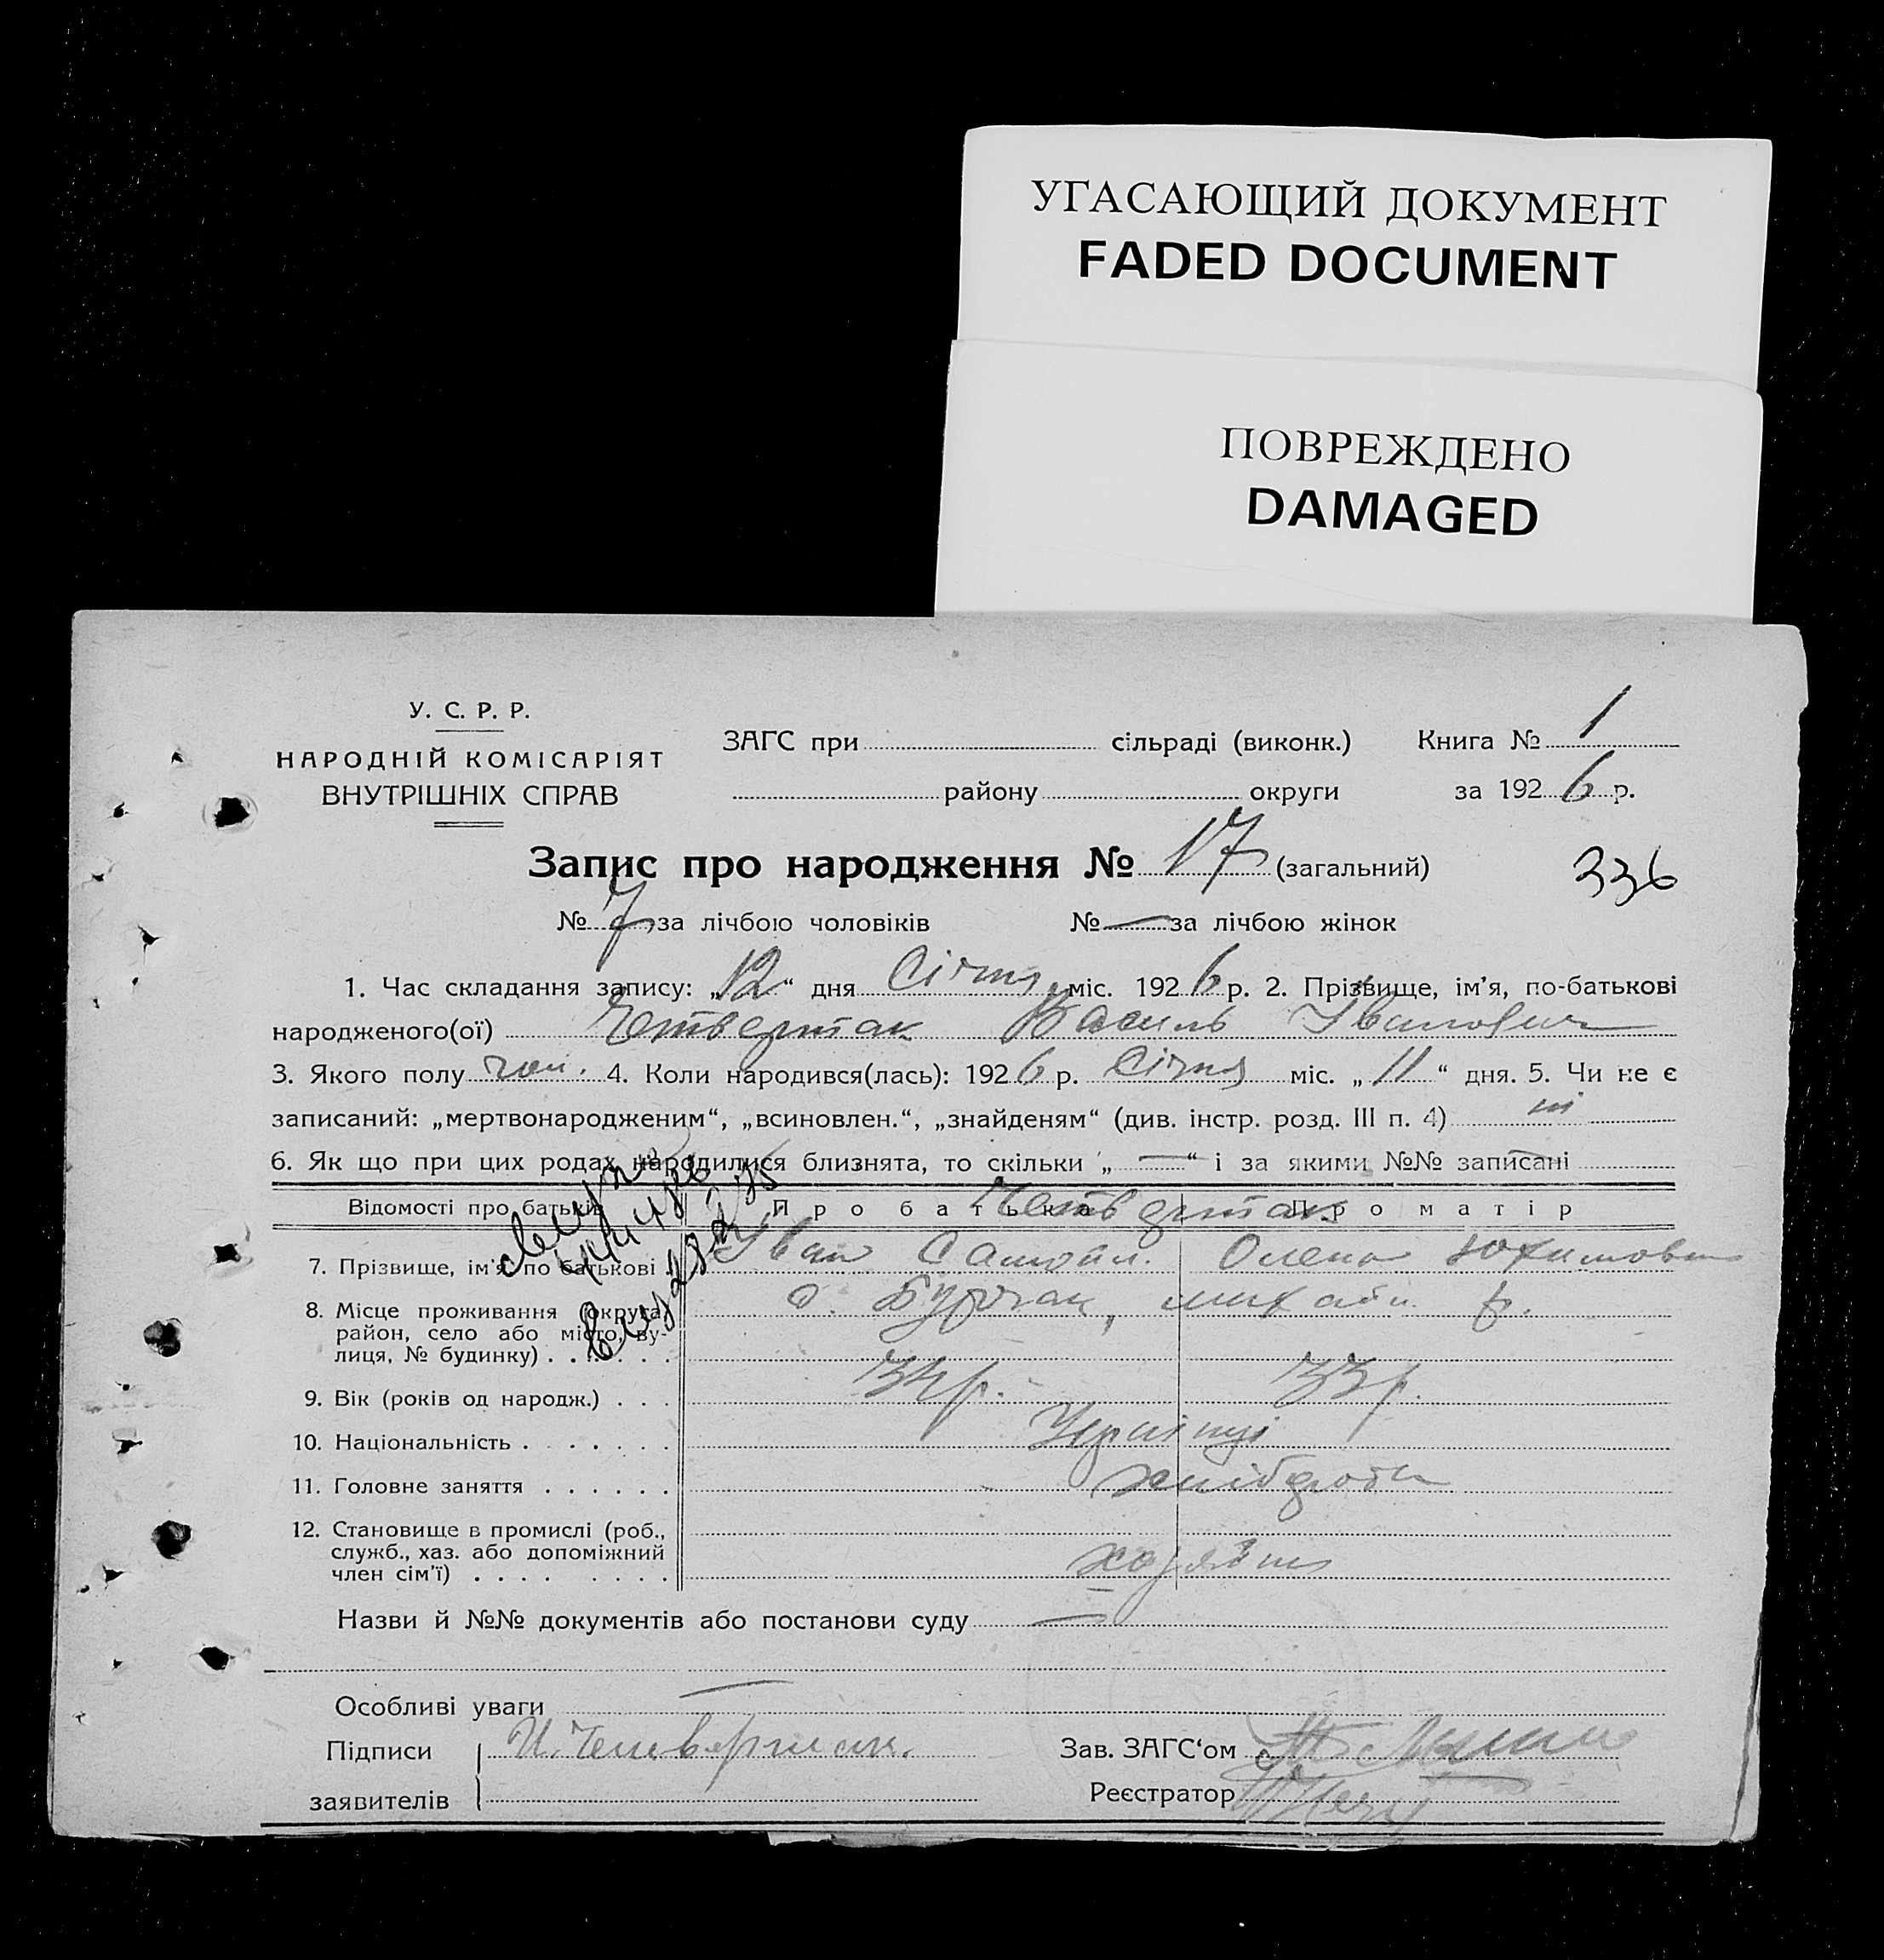 УГАСАЮЩИЙ ДОКУМЕНТ
FADED DOCUMENT
ПОВРЕЖДЕНО
DAMAGED
У. С. Р. Р.
НАРОДНІЙ КОМІСАРІЯТ
ВНУТРІШНІХ СПРАВ
ЗАГС при сільраді (виконк.) Книга № 1
району округи за 1926 р.
Запис про народження № 17 (загальний) 336
№ 7 за лічбою чоловіків № — за лічбою жінок
1. Час складання запису: „12“ дня Січня міс. 1926 р. 2. Прізвище, ім'я, по-батькові
народженого(ої) Четвертак Василь Іванович
3. Якого полу чол. 4. Коли народився(лась): 1926 р. Січня міс. „11“ дня. 5. Чи не є
записаний: „мертвонародженим“, „всиновлен.“, „знайденям“ (див. інстр. розд. III п. 4) ні
6. Як що при цих родах народилися близнята, то скільки „—“ і за якими №№ записані
Відомості про батьків Про батька Про матір
Четвертак
7. Прізвище, ім'я, по батькові Іван Самойл. Олена Юхимовна
8. Місце проживання (округа, район, село або місто, вулиця, № будинку)
9. Вік (років од народж.) . . . 34 р. 33 р.
10. Національність . . . . . . . Українці
11. Головне заняття . . . . . . хлібороби
12. Становище в промислі (роб.,
служб., хаз. або допоміжний
член сім'ї) . . . . . . . . хозяїни
Назви й №№ документів або постанови суду —
Особливі уваги —
Підписи И. Четвертак. Зав. ЗАГС‘ом
заявителів Реєстратор